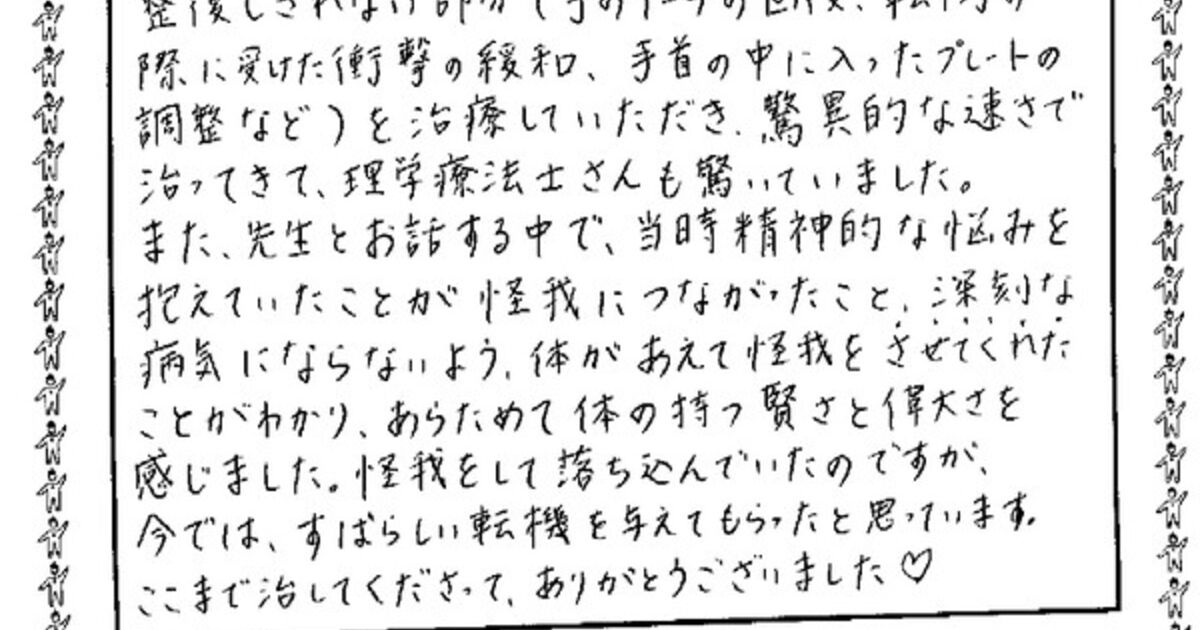 整復しきれない部分
際に受けた衝撃の緩和、手首の中に入ったプレートの
調整など)を治療していただき、驚異的な速さで
治ってきて、理学療法士さんも驚いていました。
また、先生とお話する中で、当時精神的な悩みを
抱えていたことが怪我につながったこと、深刻な
病気にならないよう、体があえて怪我をさせてくれた
ことがわかり、あらためて体の持つ賢さと偉大さを
感じました。怪我をして落ち込んでいたのですが、
今では、すばらしい転機を与えてもらったと思っています。
ここまで治してくださって、ありがとうございました♡